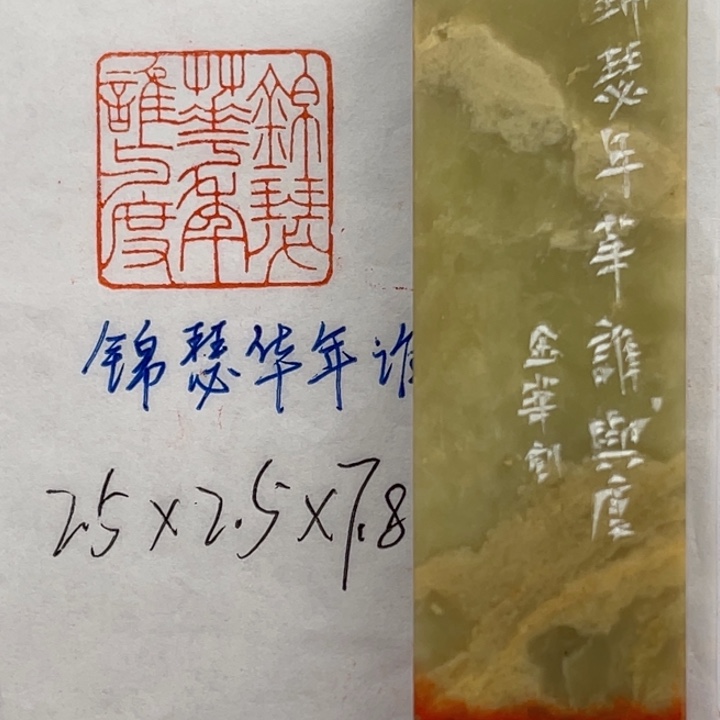 錦瑟
華年
誰与度
锦瑟华年谁
2.5×2.5×7.8
錦瑟年華誰與度
金 刻